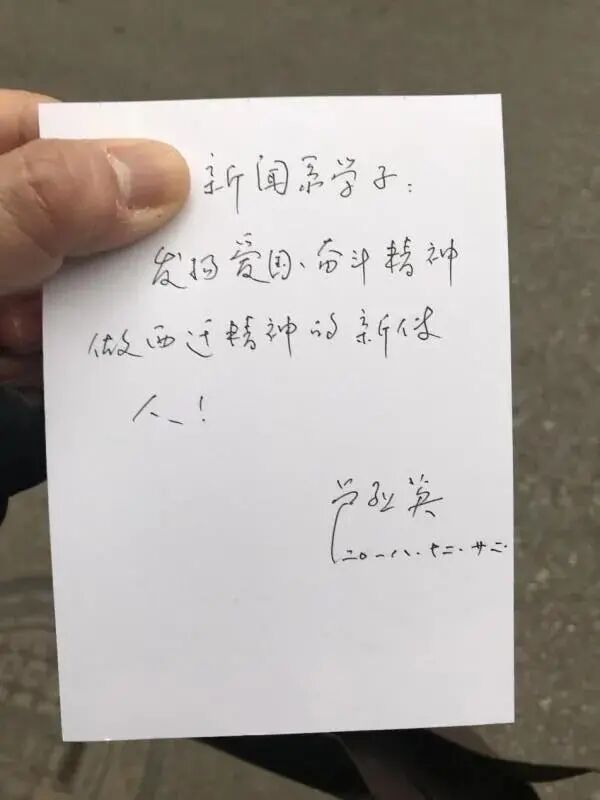 新闻系学子:
发扬爱国、奋斗精神
做西迁精神的新传
人!
卢烈英
二〇一八.十二.廿二.